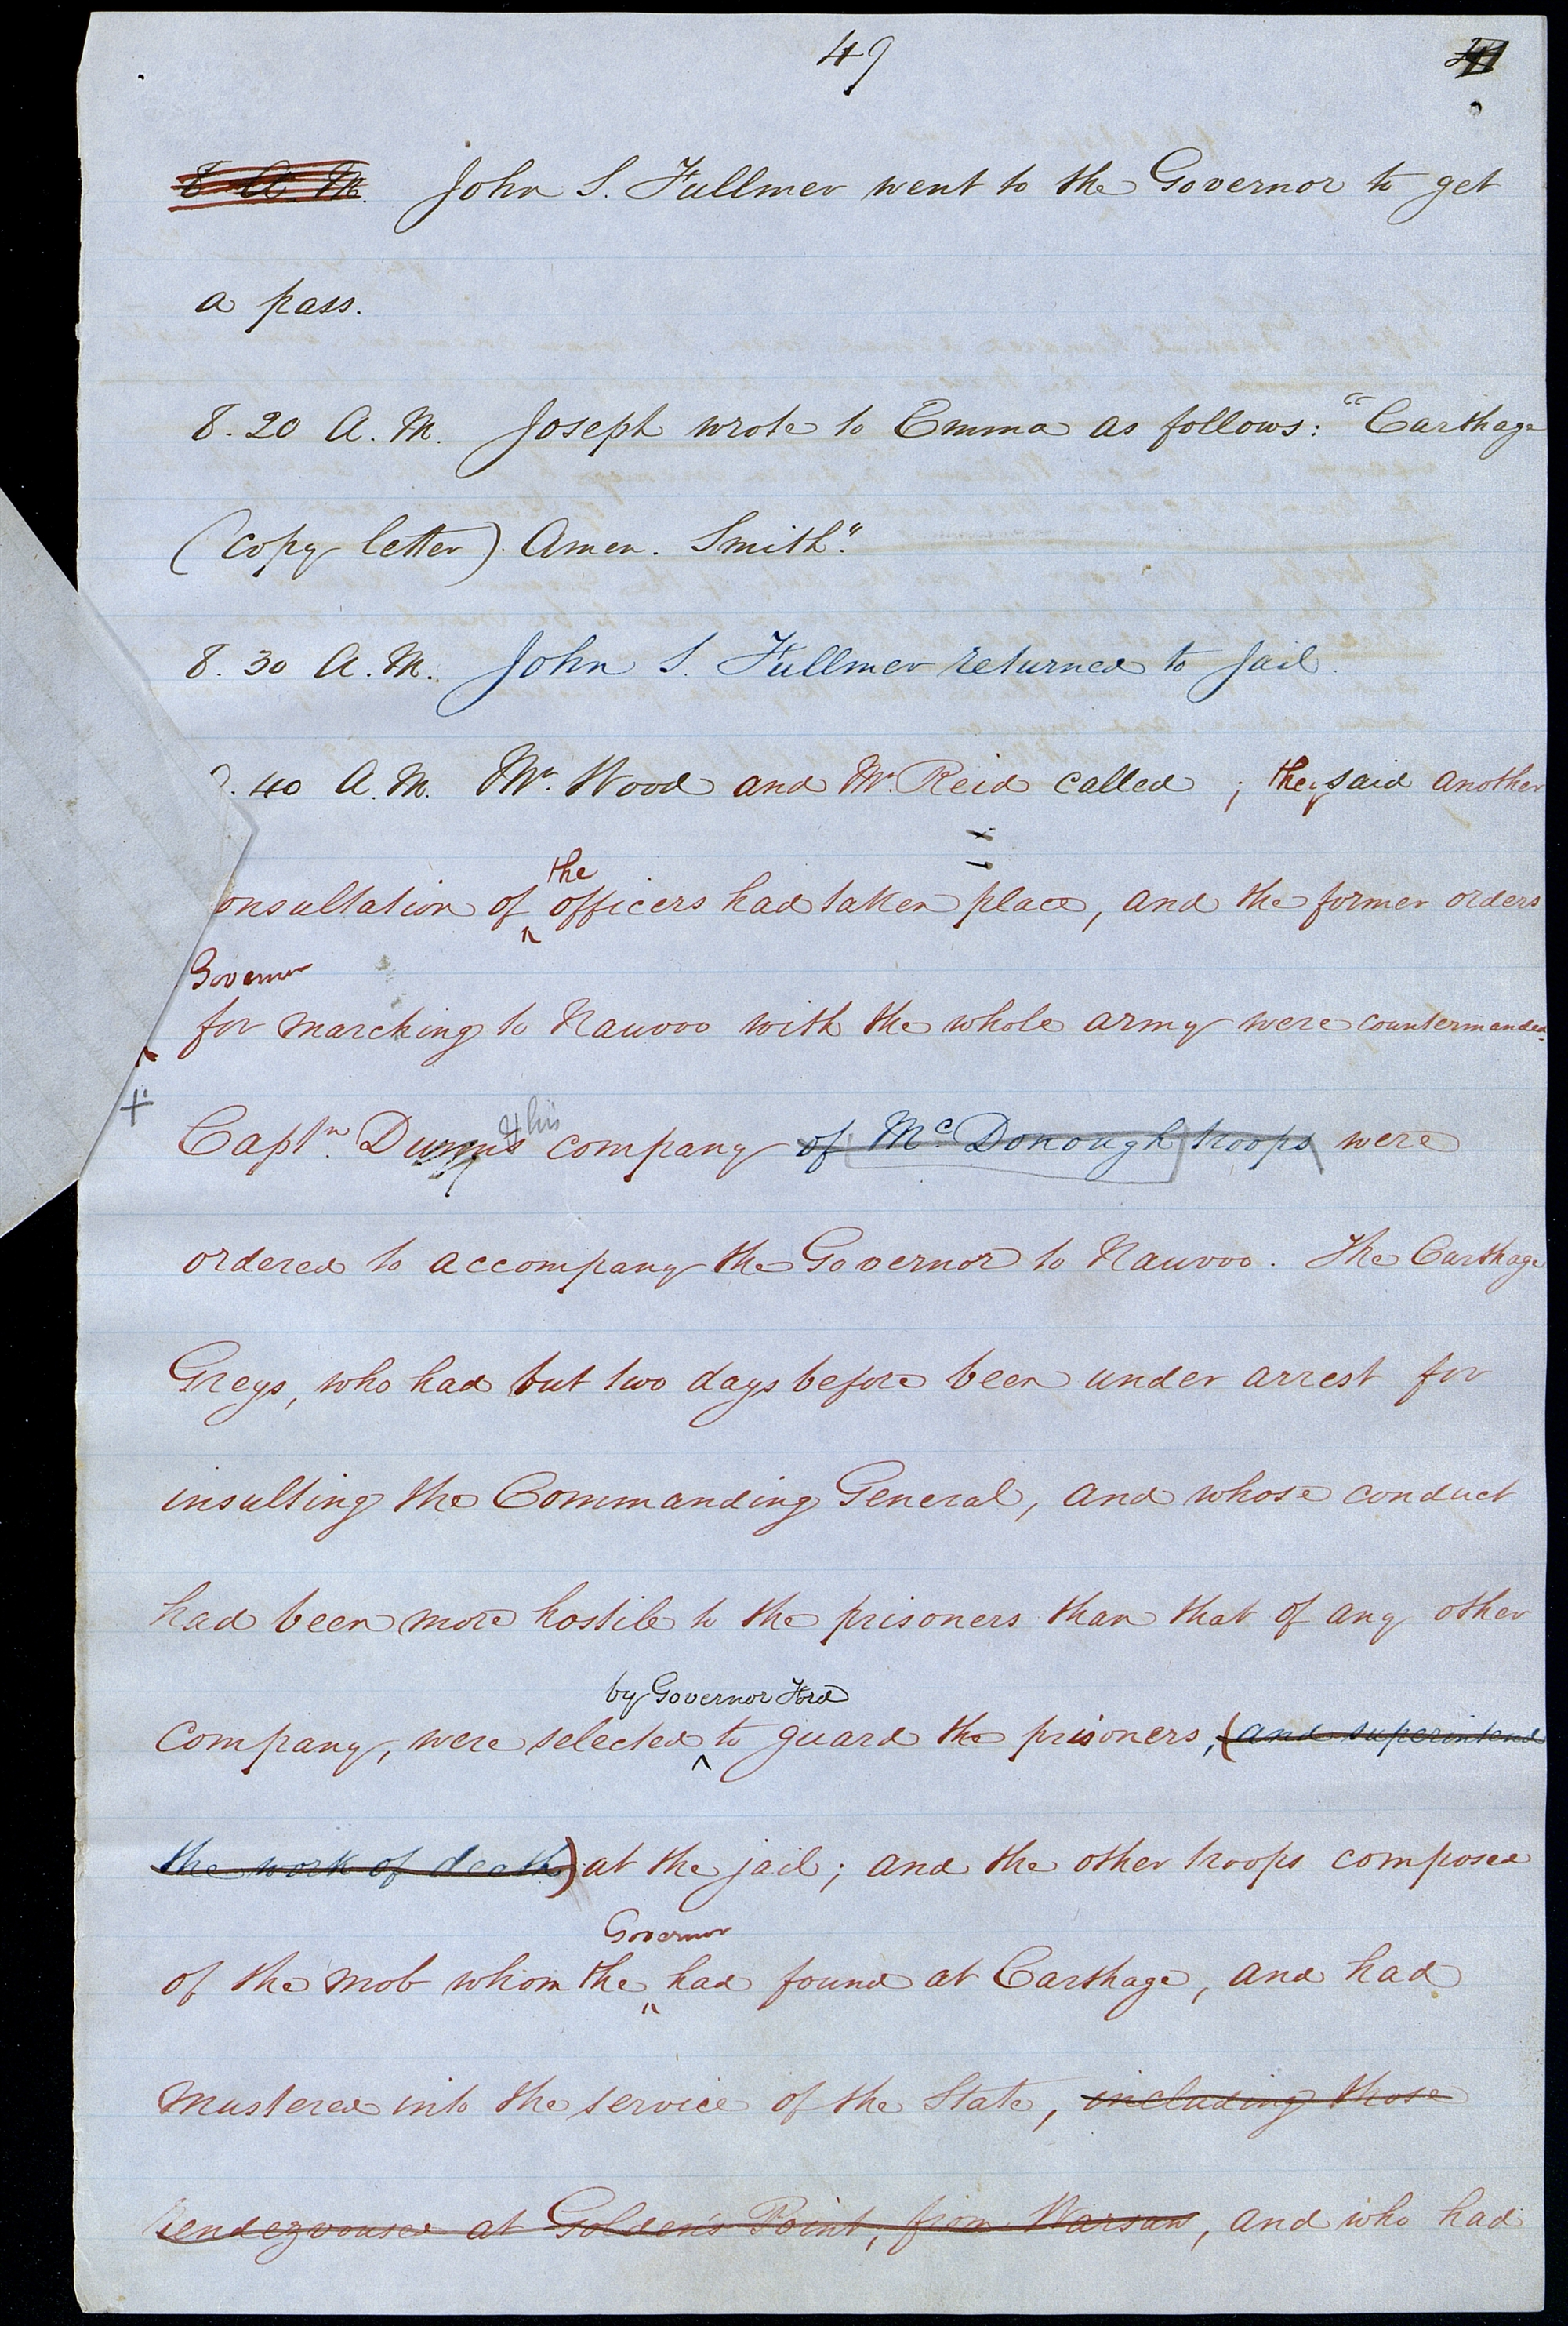 49
8 A. M. John S. Fullmer went to the Governor to get
a pass.
8. 20 A. M. Joseph wrote to Emma as follows: "Carthage
(copy letter) Amen. Smith".
8. 30 A. M. John S. Fullmer returned to jail.
. 40 A. M. Mr. Wood and Mr. Reid called ; they said another
the
onsultation of officers had taken place, and the former orders
Governor
for marching to Nauvoo with the whole army were countermanded.
& his
+ Captn. Dunn's company of McDonough troops were
ordered to accompany the Governor to Nauvoo. The Carthage
Greys, who had but two days before been under arrest for
insulting the Commanding General, and whose conduct
had been more hostile to the prisoners than that of any other
by Governor Ford
company, were selected to guard the prisoners, (and superintend
the work of death) at the jail; and the other troops composed
Governor
of the mob whom the had found at Carthage, and had
mustered into the service of the State, including those
rendezvoused at Golden's Point, from Warsaw, and who had